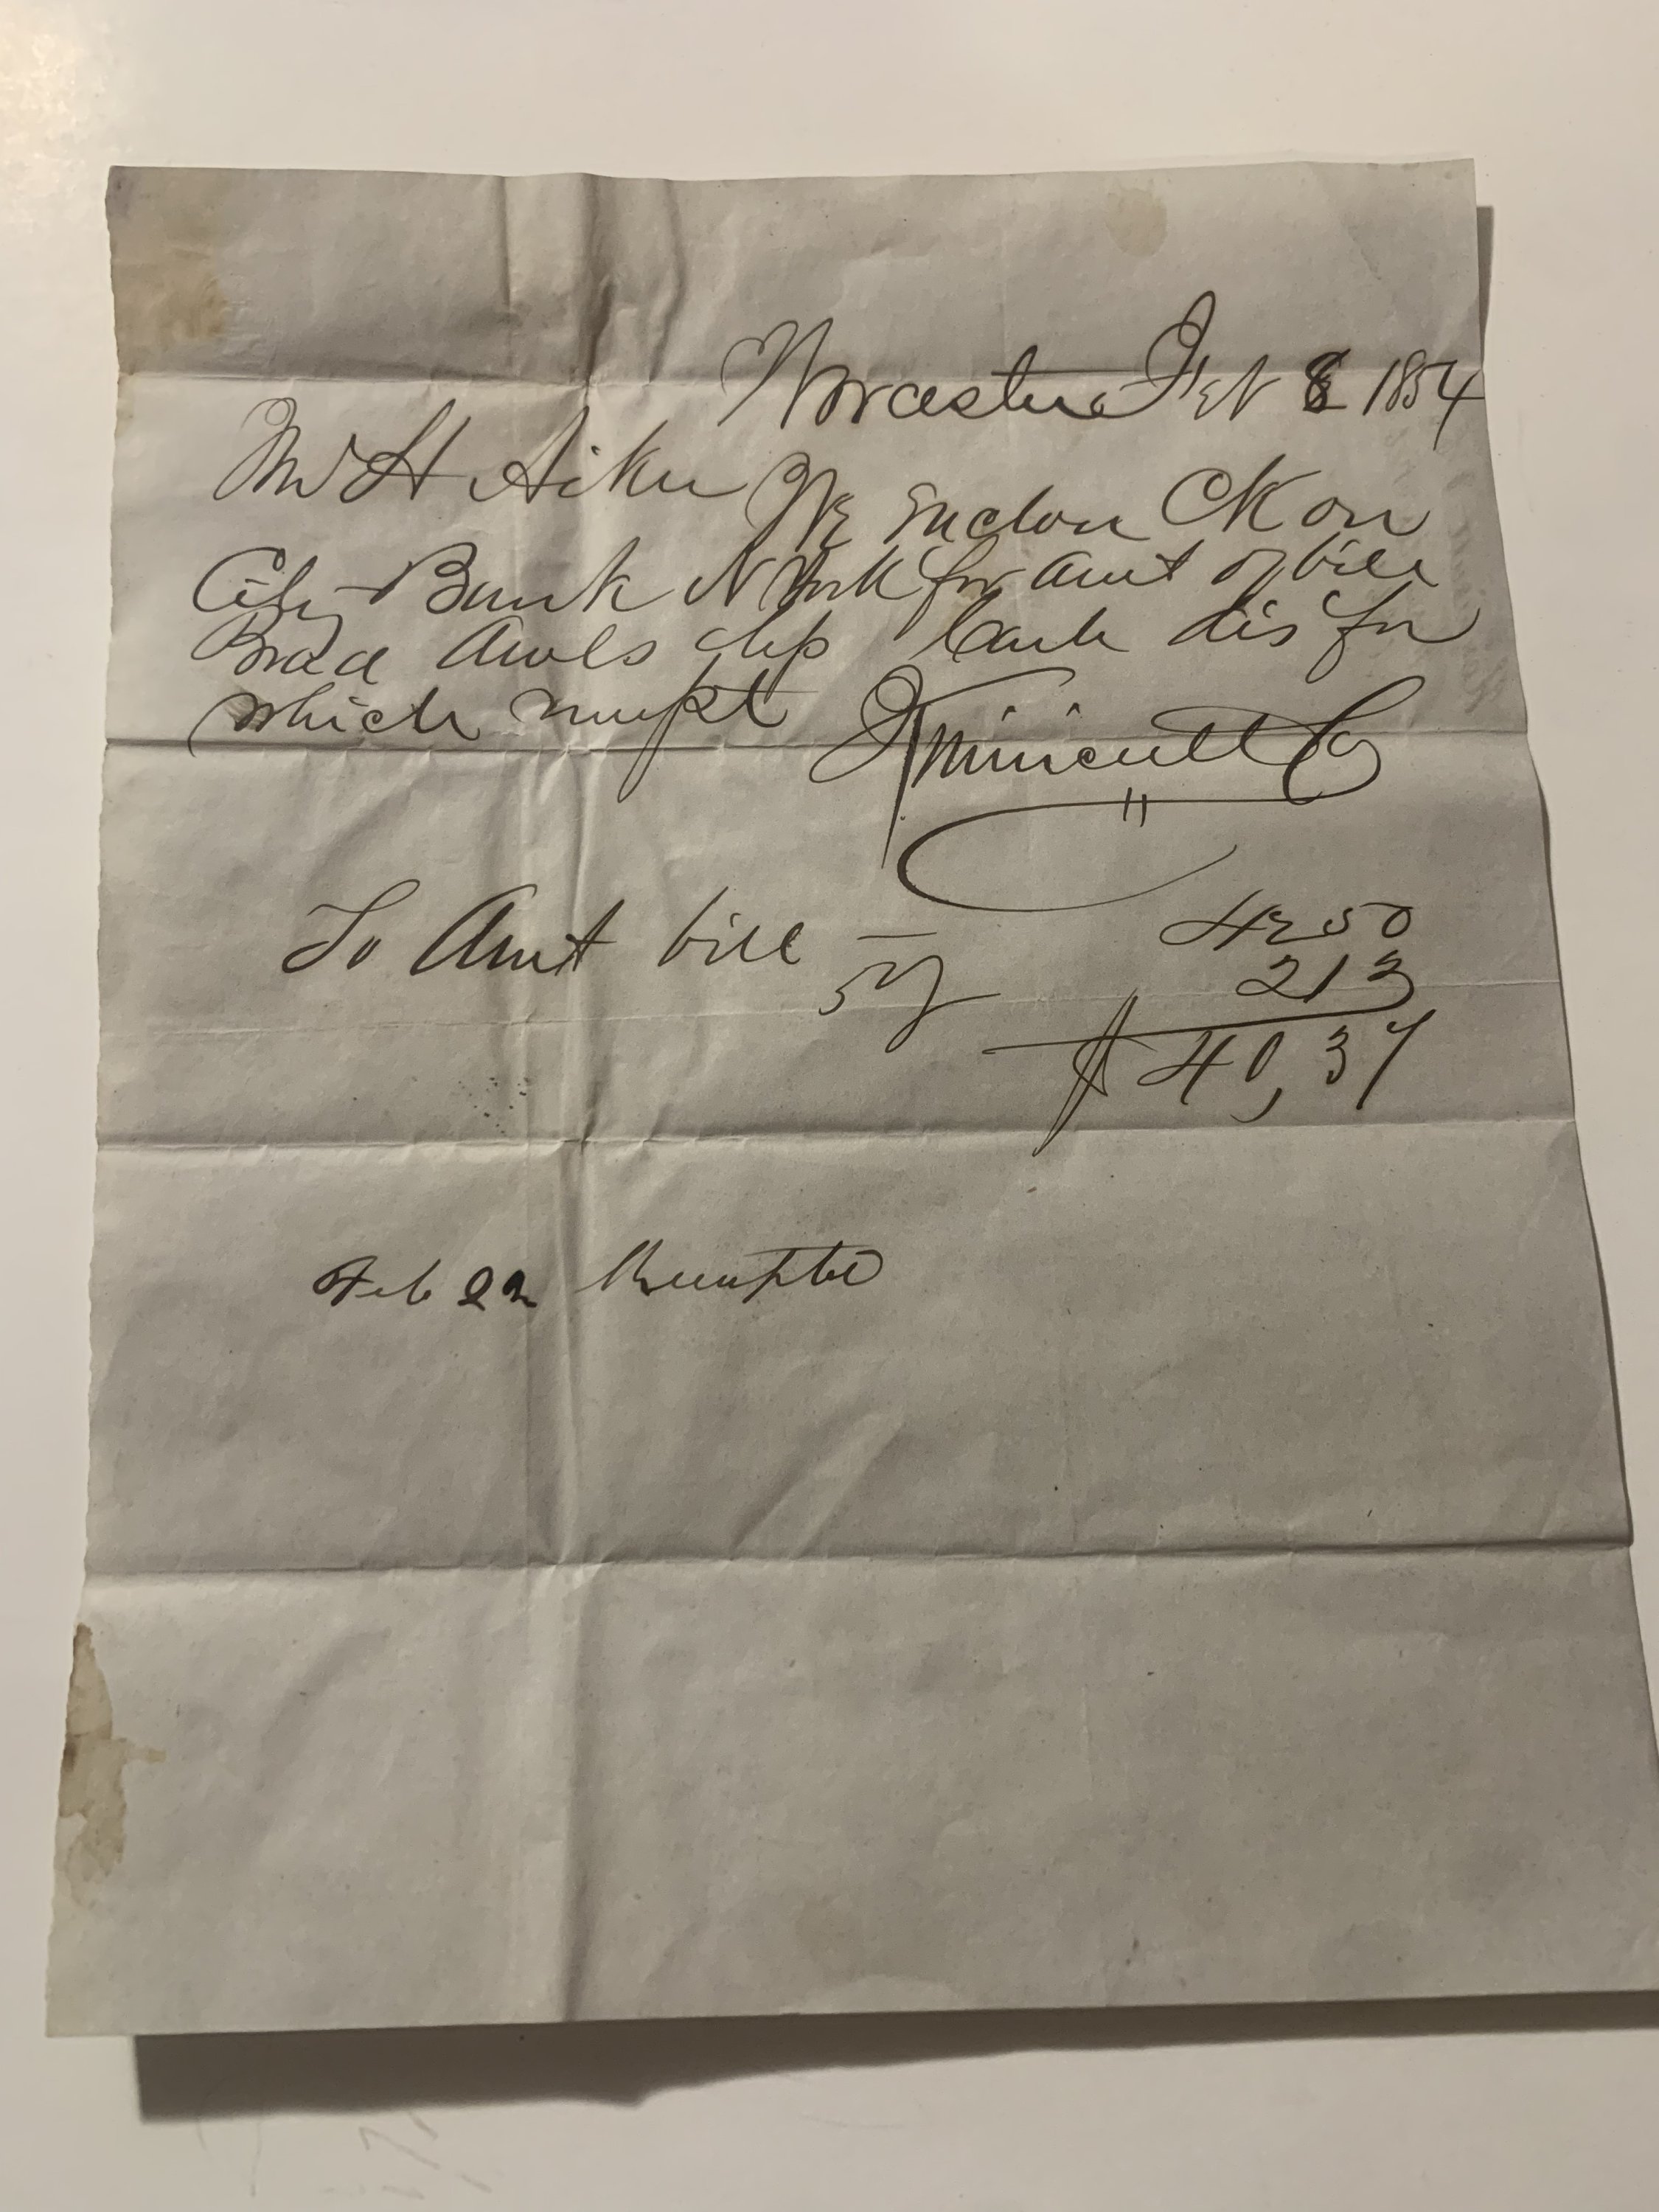 Worcester Feb 8 1854
Mr H Aiken We Enclose Ck on
City Bank N York for amt of bill
Brad Awls less cash dis for
which receipt T Kinnicutt & Co
To Amt bill — 42 50
5% 2 13
$ 40,37
Feb 22 Receipted